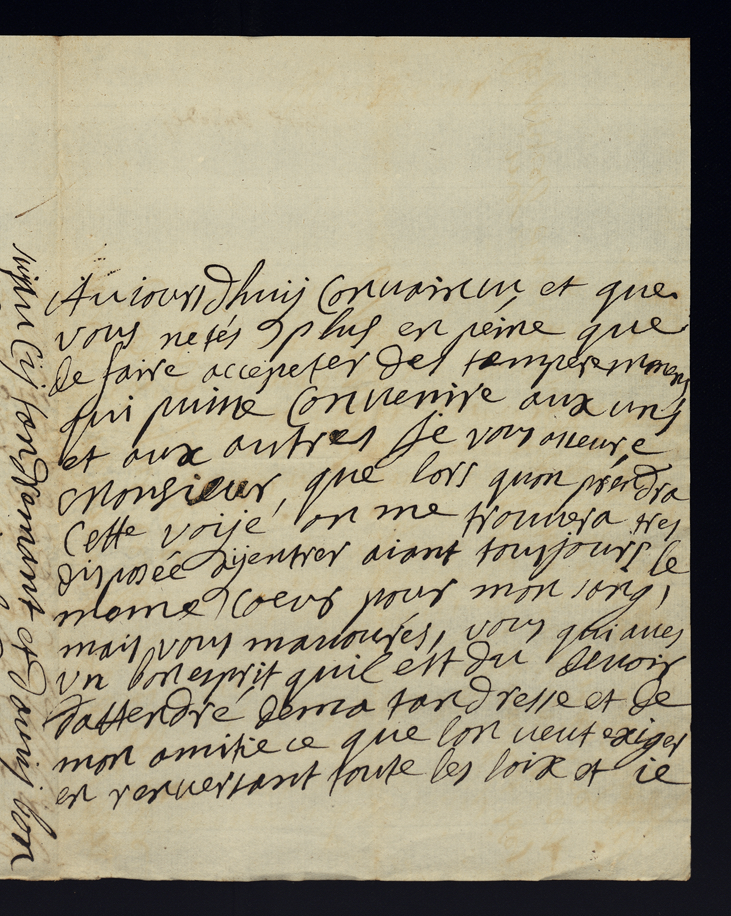 Auiourdhuij Conuaincu et que
vous netés plus en peine que
de faire accepeter des temperemmens
qui puise Conuenire aux uns
et aux autres Je vous asseure,
Monsieur, que lors quon prendra
Cette voije on me trouuera tres
disposée aijentrer aiant tousjours le
mame Coeur pour mon sang,
mais vous mauourés, vous qui aues
un bon esprit quil est du deuoir
dattendre dema tandresse et de
mon amitie ce que lon ueut exiger
en renuersant toute les loix et ie